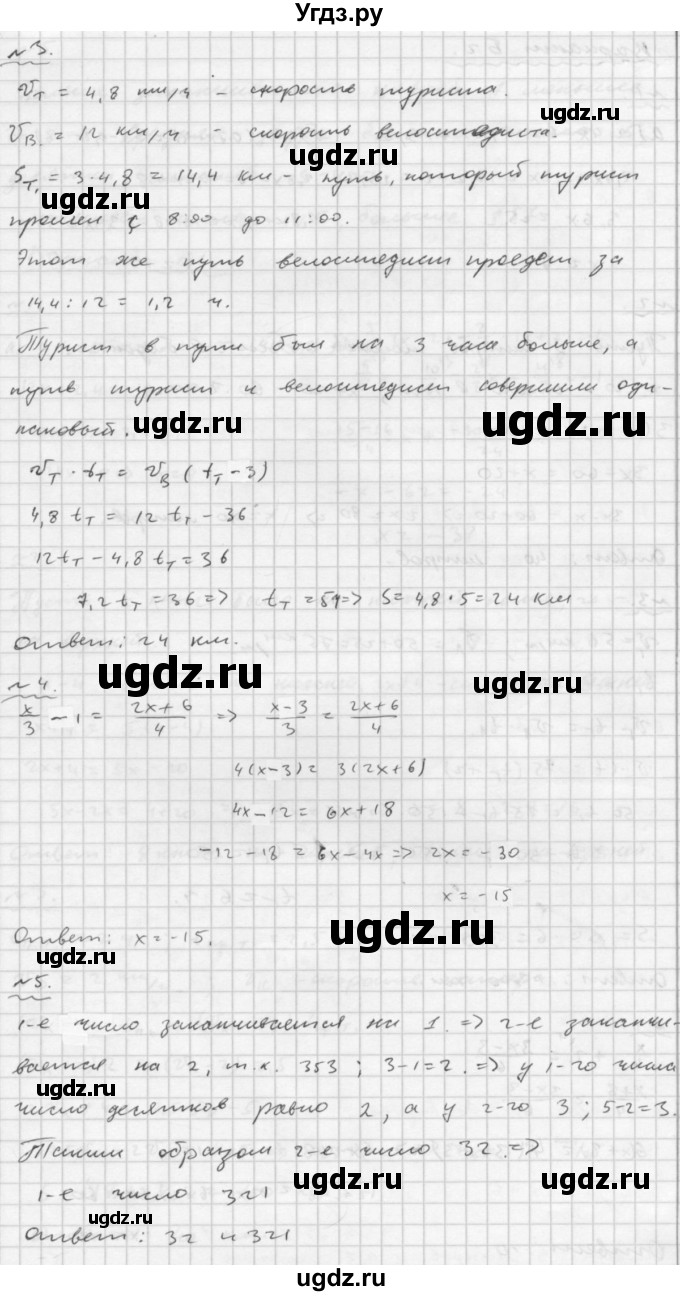 Угдз.ру
№3.
V_T = 4,8 км/ч - скорость туриста.
ugdz.ru
V_B. = 12 км/ч - скорость велосипедиста.
ugdz.ru
S_T₁ = 3·4,8 = 14,4 км - путь, который турист
ugdz.ru
прошел с 8:00 до 11:00.
Этот же путь велосипедист проедет за
14,4 : 12 = 1,2 ч.
Турист в пути был на 3 часа больше, а
путь турист и велосипедист совершили оди-
ugdz.ru ugdz.ru
наковый.
V_T · t_T = V_B (t_T - 3)
4,8 t_T = 12 t_T - 36
12t_T - 4,8 t_T = 36
7,2 t_T = 36 => t_T = 5ч => S = 4,8·5 = 24 км
Ответ: 24 км.
ugdz.ru
№4.
x/3 - 1 = (2x+6)/4 => (x-3)/3 = (2x+6)/4
4(x-3) = 3(2x+6)
4x-12 = 6x+18
-12-18 = 6x-4x => 2x = -30
x = -15
ugdz.ru
Ответ: x = -15.
ugdz.ru
№5.
1-е число заканчивается на 1. => 2-е заканчи-
вается на 2, т.к. 353 ; 3-1=2. => у 1-го числа
ugdz.ru
число десятков равно 2, а у 2-го 3 ; 5-2=3.
Таким образом 2-е число 32. =>
ugdz.ru
1-е число 321
ugdz.ru
Ответ: 32 и 321
ugdz.ru